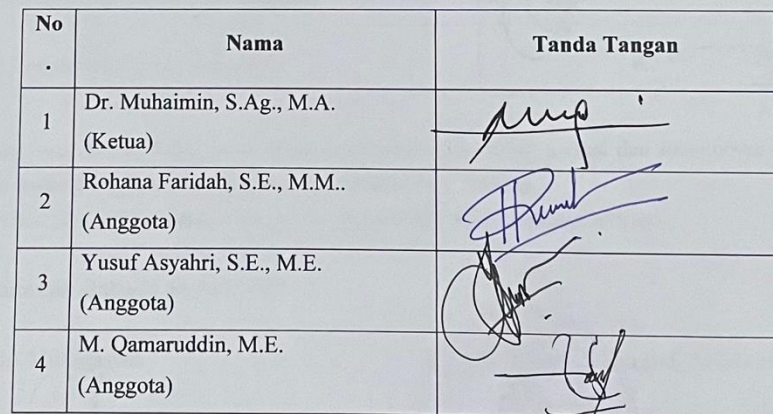 No
.
Nama
Tanda Tangan
1
Dr. Muhaimin, S.Ag., M.A.
(Ketua)
2
Rohana Faridah, S.E., M.M..
(Anggota)
3
Yusuf Asyahri, S.E., M.E.
(Anggota)
4
M. Qamaruddin, M.E.
(Anggota)